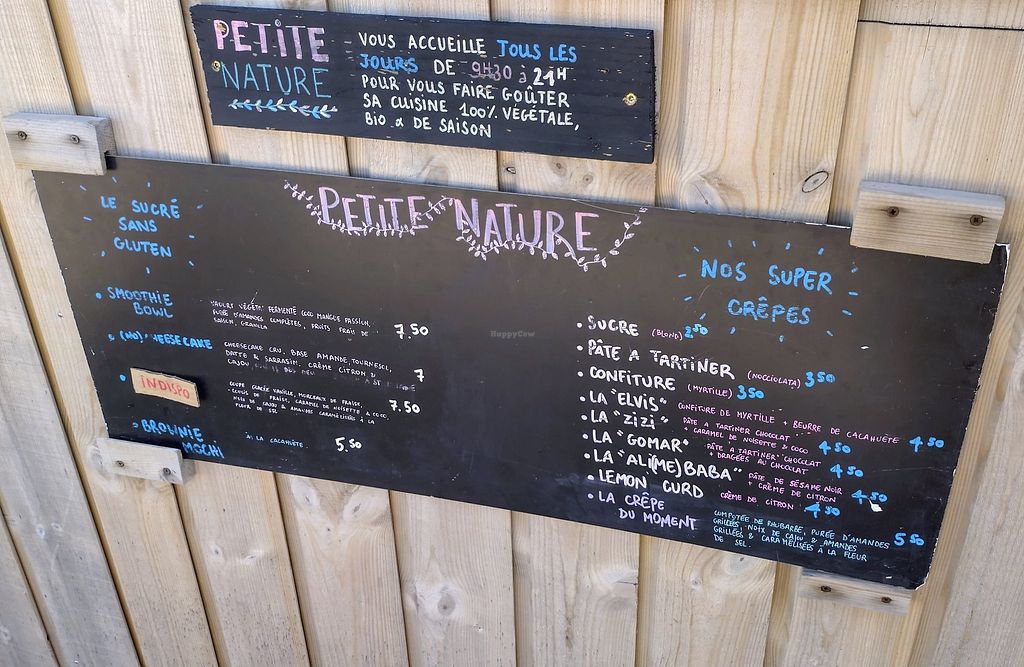 PETITE
NATURE
VOUS ACCUEILLE TOUS LES
JOURS DE 9H30 à 21H
POUR VOUS FAIRE GOÛTER
SA CUISINE 100% VÉGÉTALE,
BIO & DE SAISON
PETITE NATURE
LE SUCRÉ
SANS
GLUTEN
• SMOOTHIE
BOWL
YAOURT VÉGÉTAL FERMENTÉ COCO MANGUE PASSION,
PURÉE D'AMANDES COMPLÈTES, FRUITS FRAIS DE
SAISON, GRANOLA
7.50
CHEESECAKE
CHEESECAKE CRU, BASE AMANDE, TOURNESOL,
DATTE & SARRASIN, CRÈME CITRON &
CAJOU
7
• INDISPO
COUPE GLACÉE VANILLE, MORCEAUX DE FRAISE,
COULIS DE FRAISE, CARAMEL DE NOISETTE & COCO,
NOIX DE CAJOU & AMANDES CARAMÉLISÉES À LA
FLEUR DE SEL
7.50
• BROWNIE
MOCHI
À LA CACAHUÈTE
5.50
NOS SUPER
CRÊPES
• SUCRE (BLOND) 2.50
• PÂTE A TARTINER (NOCCIOLATA) 3.50
• CONFITURE (MYRTILLE) 3.50
• LA "ELVIS" CONFITURE DE MYRTILLE + BEURRE DE CACAHUÈTE 4.50
• LA "ZIZI" PÂTE A TARTINER CHOCOLAT
+ CARAMEL DE NOISETTE & COCO 4.50
• LA "GOMAR" PÂTE A TARTINER CHOCOLAT
+ DRAGÉES AU CHOCOLAT 4.50
• LA "ALI(ME)BABA" PÂTE DE SÉSAME NOIR
+ CRÈME DE CITRON 4.50
• LEMON CURD CRÈME DE CITRON 4.50
• LA CRÊPE
DU MOMENT
COMPOTÉE DE RHUBARBE, PURÉE D'AMANDES
GRILLÉES NOIX DE CAJOU & AMANDES
GRILLÉES & CARAMÉLISÉES À LA FLEUR
DE SEL
5.50
HappyCow